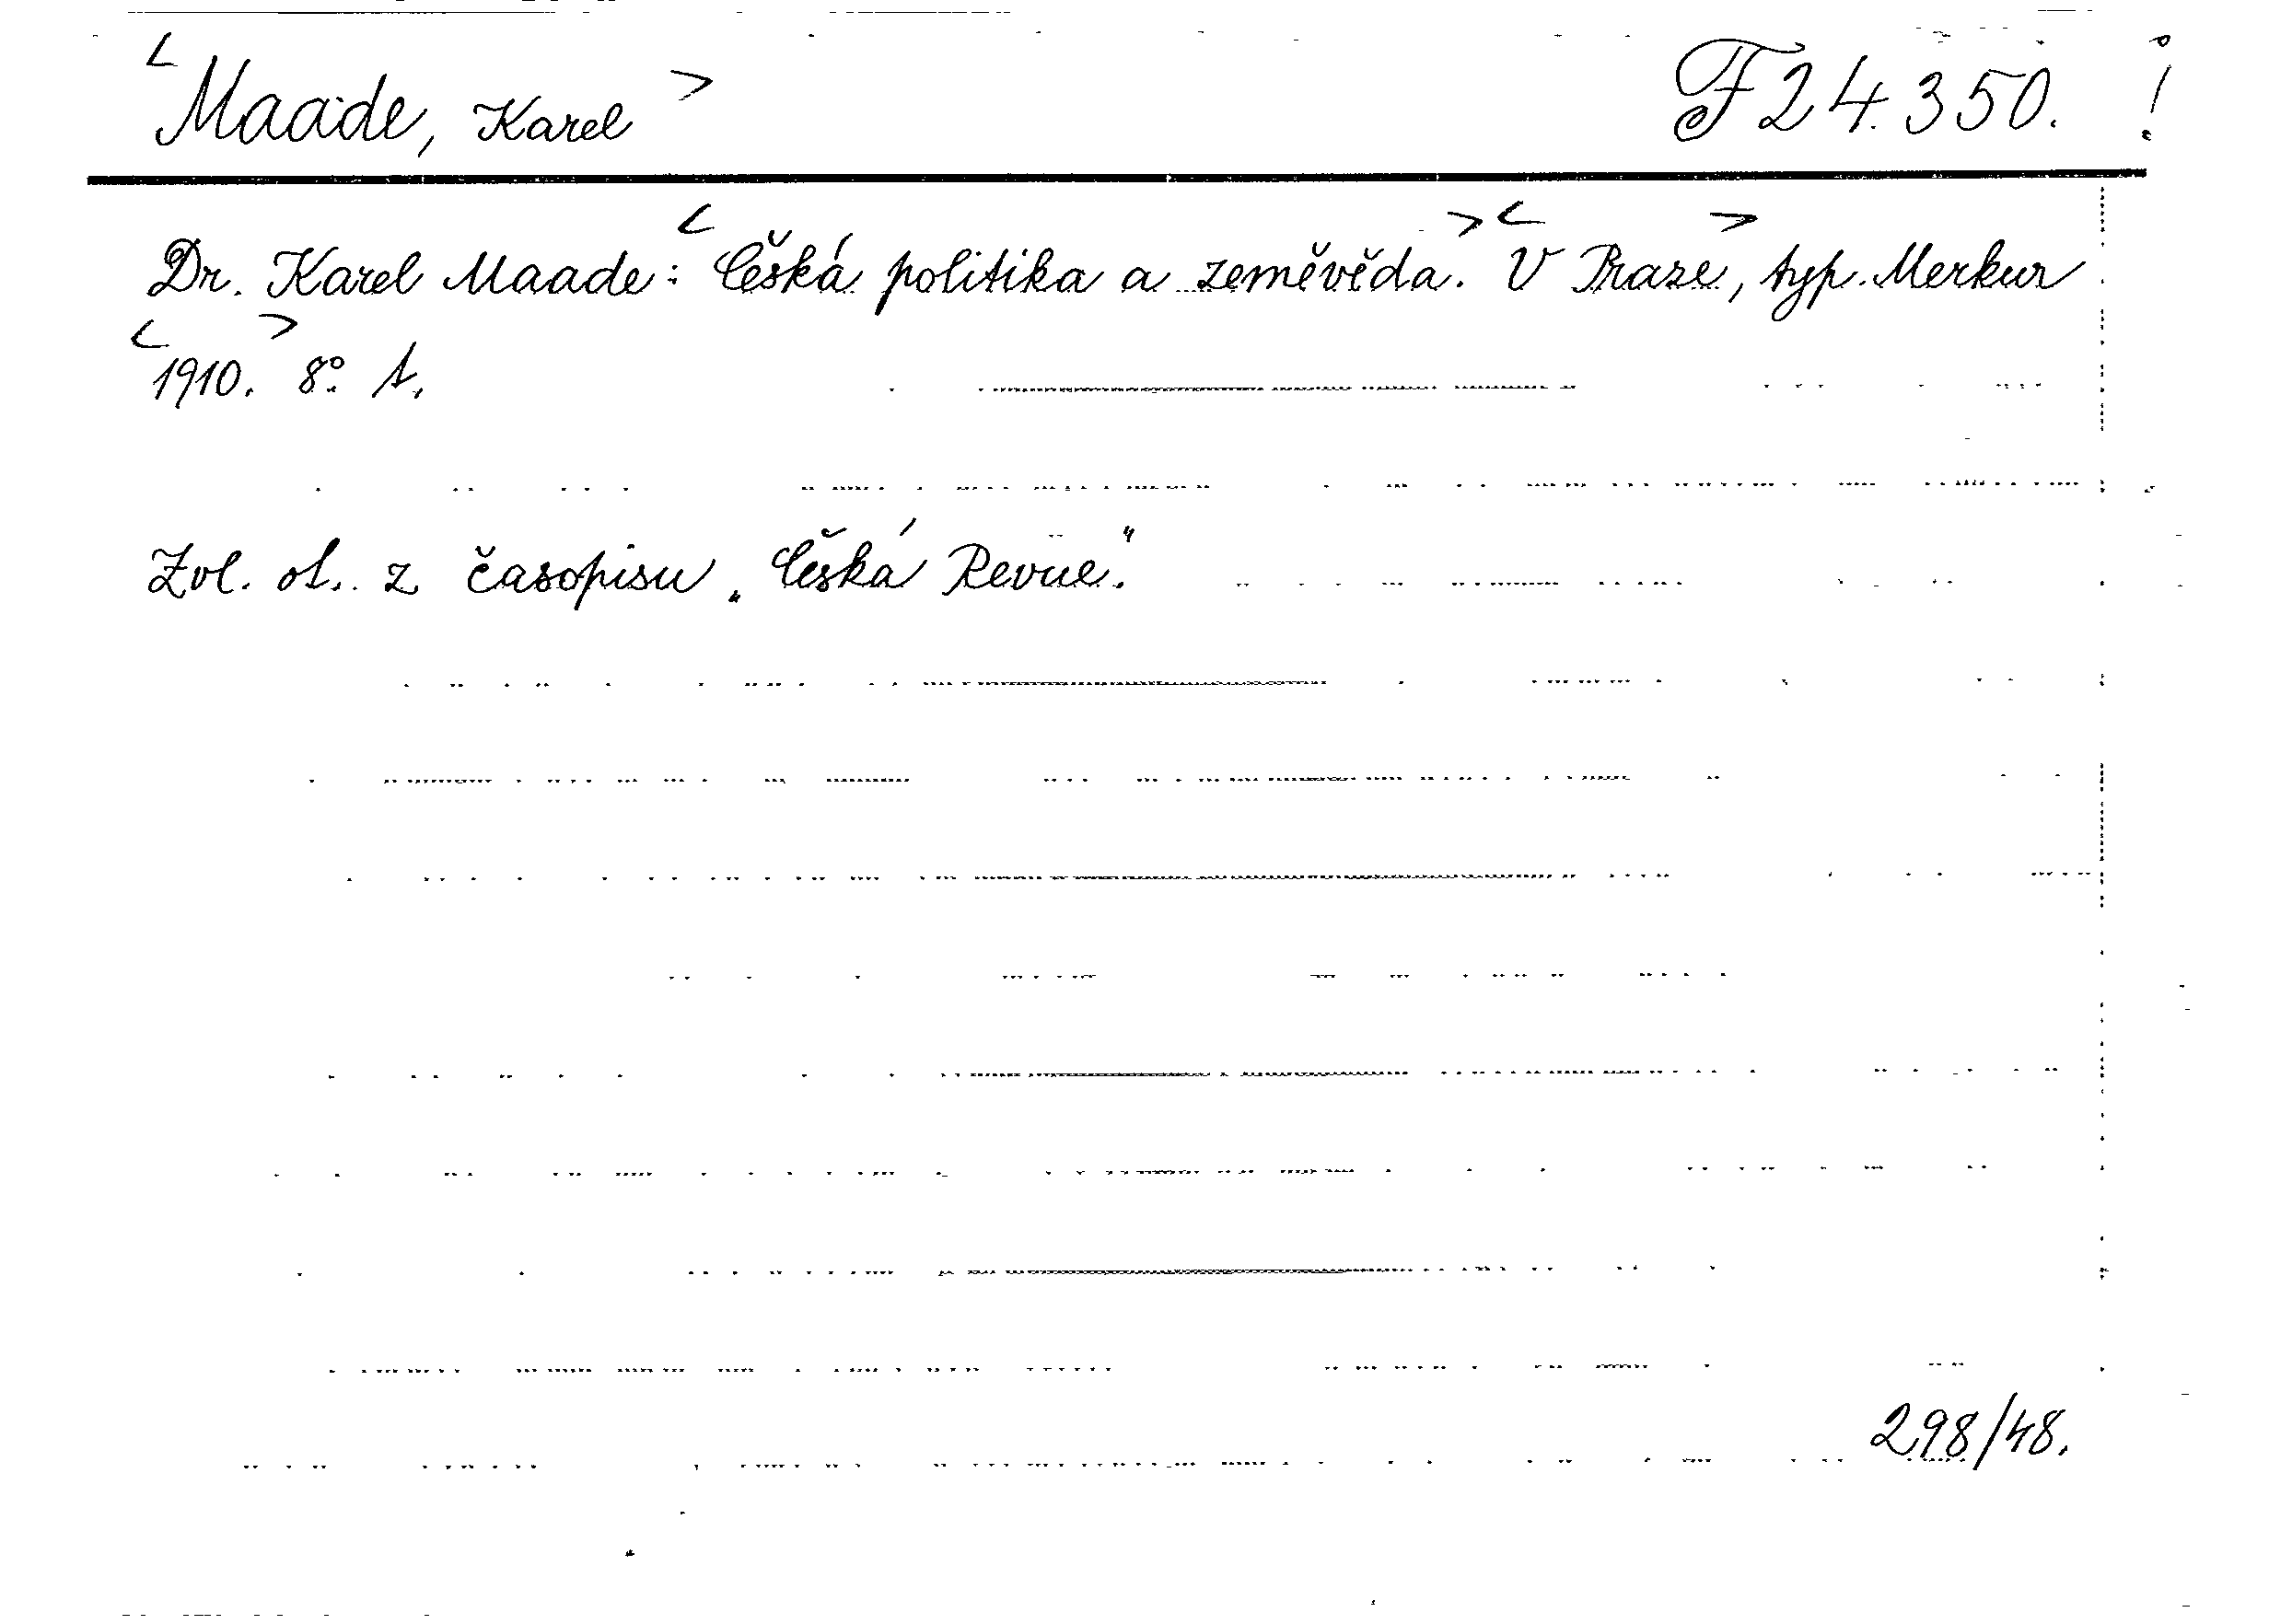 <Maade, Karel> F 24.350. !
Dr. Karel Maade: <Česká politika a zeměvěda.> <V Praze>, typ. Merkur
<1910.> 8° A.
Zvl. ot. z časopisu „Česká Revue."
298/48.